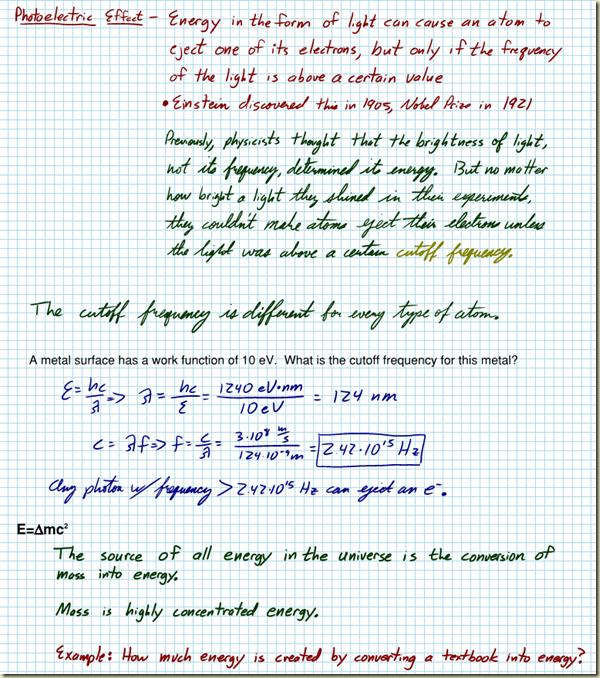 Photoelectric Effect – Energy in the form of light can cause an atom to
eject one of its electrons, but only if the frequency
of the light is above a certain value
• Einstein discovered this in 1905, Nobel Prize in 1921
Previously, physicists thought that the brightness of light,
not its frequency, determined its energy. But no matter
how bright a light they shined in their experiments,
they couldn't make atoms eject their electrons unless
the light was above a certain cutoff frequency.
The cutoff frequency is different for every type of atom.
A metal surface has a work function of 10 eV. What is the cutoff frequency for this metal?
E = hc/λ => λ = hc/E = 1240 eV·nm / 10 eV = 124 nm
c = λf => f = c/λ = 3·10⁸ m/s / 124·10⁻⁹ m = 2.42·10¹⁵ Hz
Any photon w/ frequency > 2.42·10¹⁵ Hz can eject an e⁻.
E=Δmc²
The source of all energy in the universe is the conversion of
mass into energy.
Mass is highly concentrated energy.
Example: How much energy is created by converting a textbook into energy?